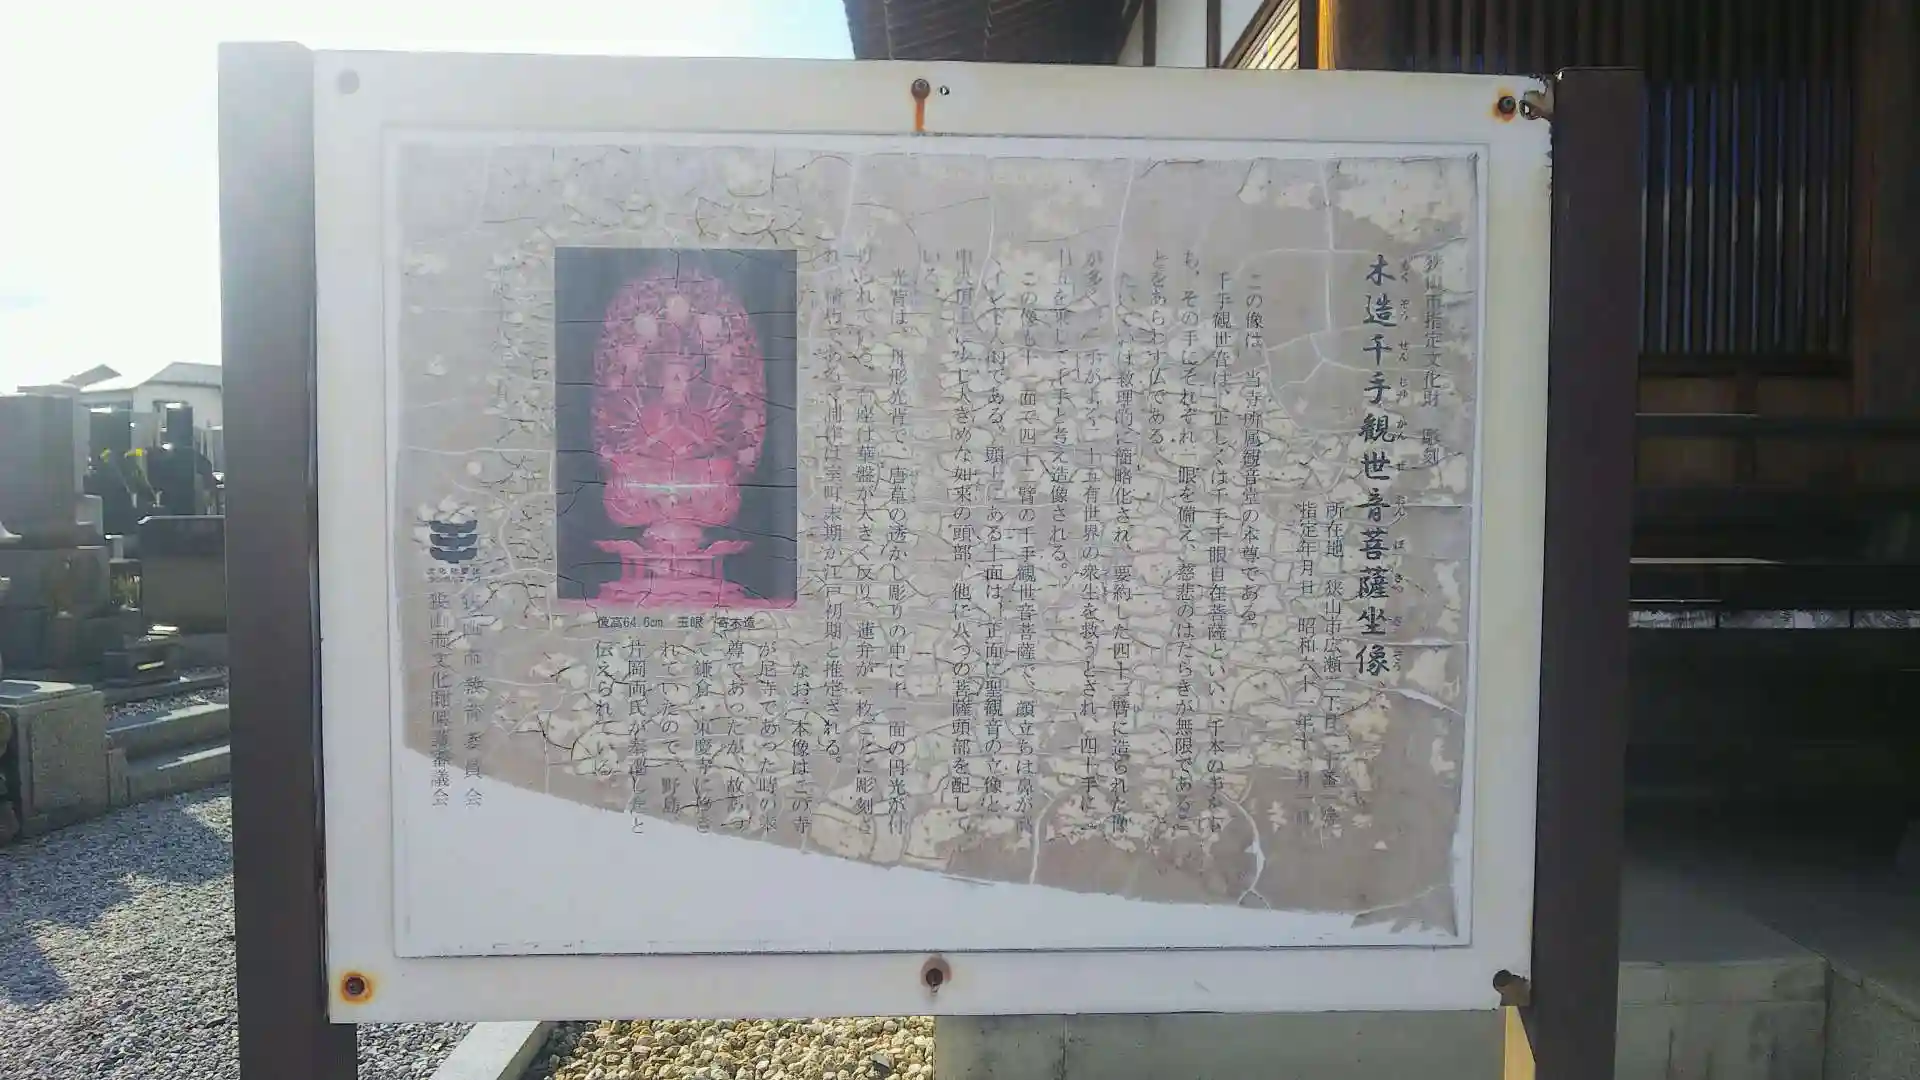 狭山市指定文化財 彫刻
木造千手観世音菩薩坐像
もく ぞう せん じゅ かん ぜ おん ぼ さつ ざ ぞう
所在地 狭山市広瀬
指定年月日 昭和六十 年十 月一
この像は、当寺所属観音堂の本尊である。
千手観世音は、正しくは千手千眼自在菩薩といい、千本の手をも
ち、その手にそれぞれ一眼を備え、慈悲のはたらきが無限であるこ
とをあらわす仏である。
たいていは教理的に簡略化され、要約した四十二臂に造られた像
が多く、 十五有世界の衆生を救うとされ、四十手に二
十五を乗じて千手と考え造像される。
この像も十一面で四十二臂の千手観世音菩薩で、顔立ちは鼻が高
くインド人的である。頭上にある十面は、正面に聖観音の立像と
中央頂上に少し大きめな如来の頭部、他に八つの菩薩頭部を配して
いる。
光背は、舟形光背で、唐草の透かし彫りの中に十一面の円光が付
けられている。台座は華盤が大きく反り、蓮弁が一枚ごとに彫刻さ
れ、 制作は室町末期か江戸初期と推定される。
なお、本像はこの寺
が尼寺であった時の本
尊であったが、故あっ
て鎌倉・東慶寺に移さ
れていたので、野島、
片岡両氏が奉還したと
伝えられている。
像高64.6cm 玉眼 寄木造
狭山市教育委員会
狭山市文化財保護審議会